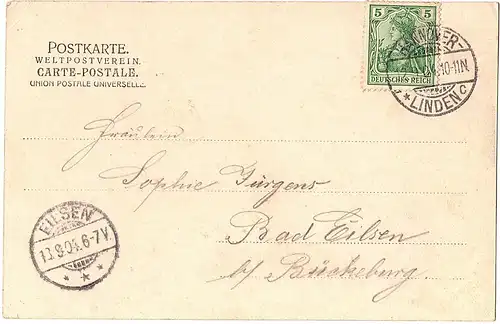 POSTKARTE.
WELTPOSTVEREIN.
CARTE-POSTALE.
UNION POSTALE UNIVERSELLE.
5 5
DEUTSCHES REICH
HANNOVER-
10-11N.
* LINDEN C
Fräulein
Sophie Jürgens
Bad Eilsen
b/ Bückeburg
EILSEN
6-7V.
* * *